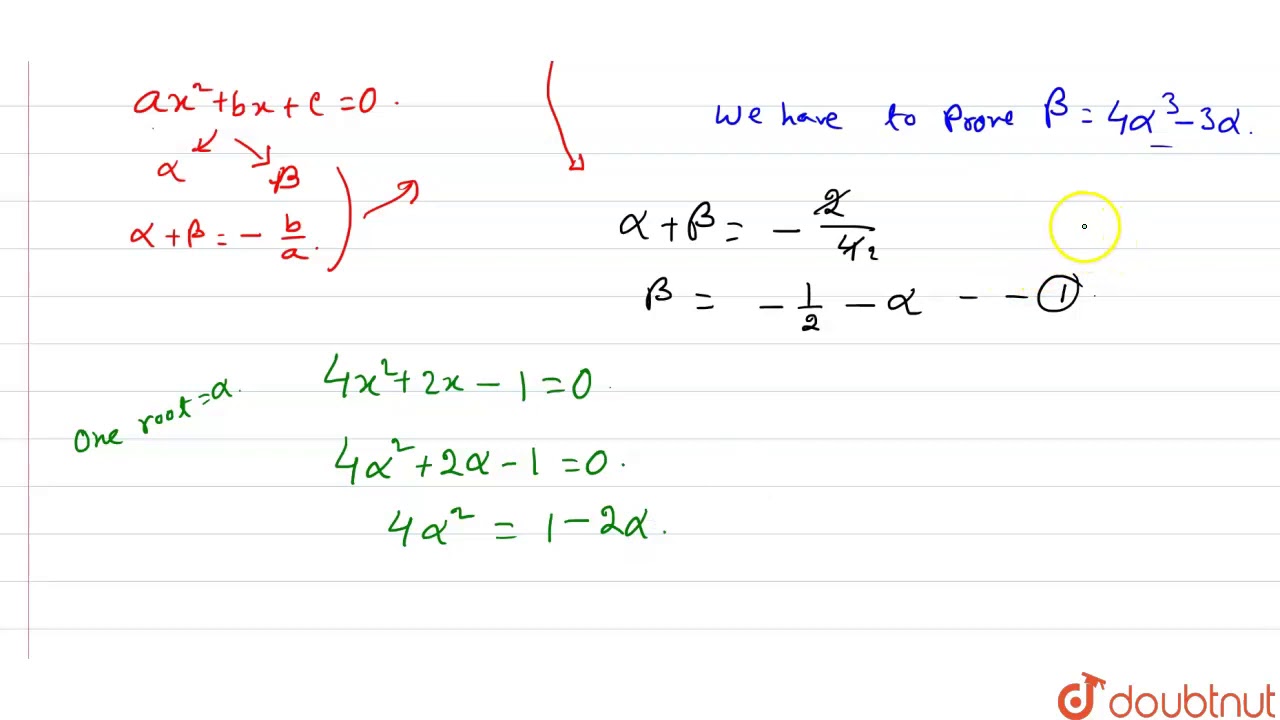 ax²+bx+c=0.
α β
α+β=-b/a.
We have to Prove β=4α³-3α.
α+β=-2/4 2
β = -1/2 - α - - ①
One root=α.
4x²+2x-1=0.
4α²+2α-1=0.
4α² = 1-2α.
doubtnut